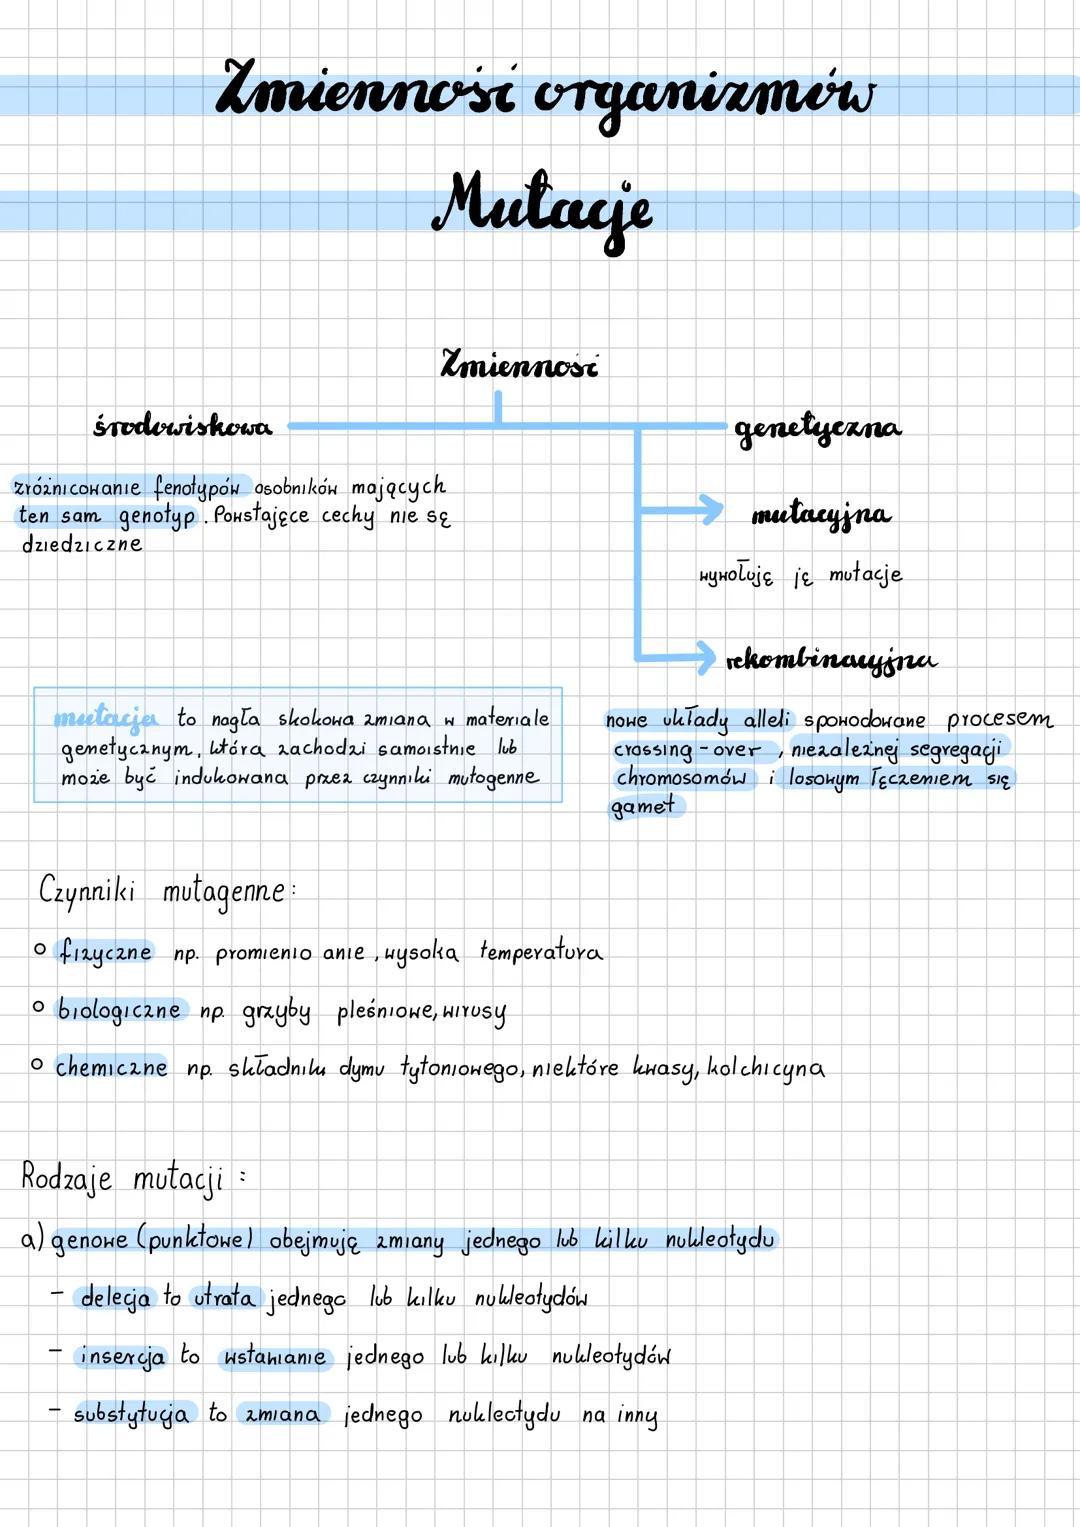 Zmienność organizmów
Mutacje
Zmienność
środowiskowa
genetyczna
zróżnicowanie fenotypów osobników mających
ten sam genotyp. Powstające cechy nie są
dziedziczne
mutacyjna
wywołują ją mutacje
rekombinacyjna
mutacja to nagła skokowa zmiana w materiale
genetycznym, która zachodzi samoistnie lub
może być indukowana przez czynniki mutogenne
nowe układy alleli spowodowane procesem
crossing-over, niezależnej segregacji
chromosomów i losowym łączeniem się
gamet
Czynniki mutagenne:
○ fizyczne np. promienio anie, wysoka temperatura
○ biologiczne np. grzyby pleśniowe, wirusy
○ chemiczne np. składniki dymu tytoniowego, niektóre kwasy, kolchicyna
Rodzaje mutacji:
a) genowe (punktowe) obejmują zmiany jednego lub kilku nukleotydu
- delecja to utrata jednego lub kilku nukleotydów
- insercja to wstawianie jednego lub kilku nukleotydów
- substytucja to zmiana jednego nukleotydu na inny